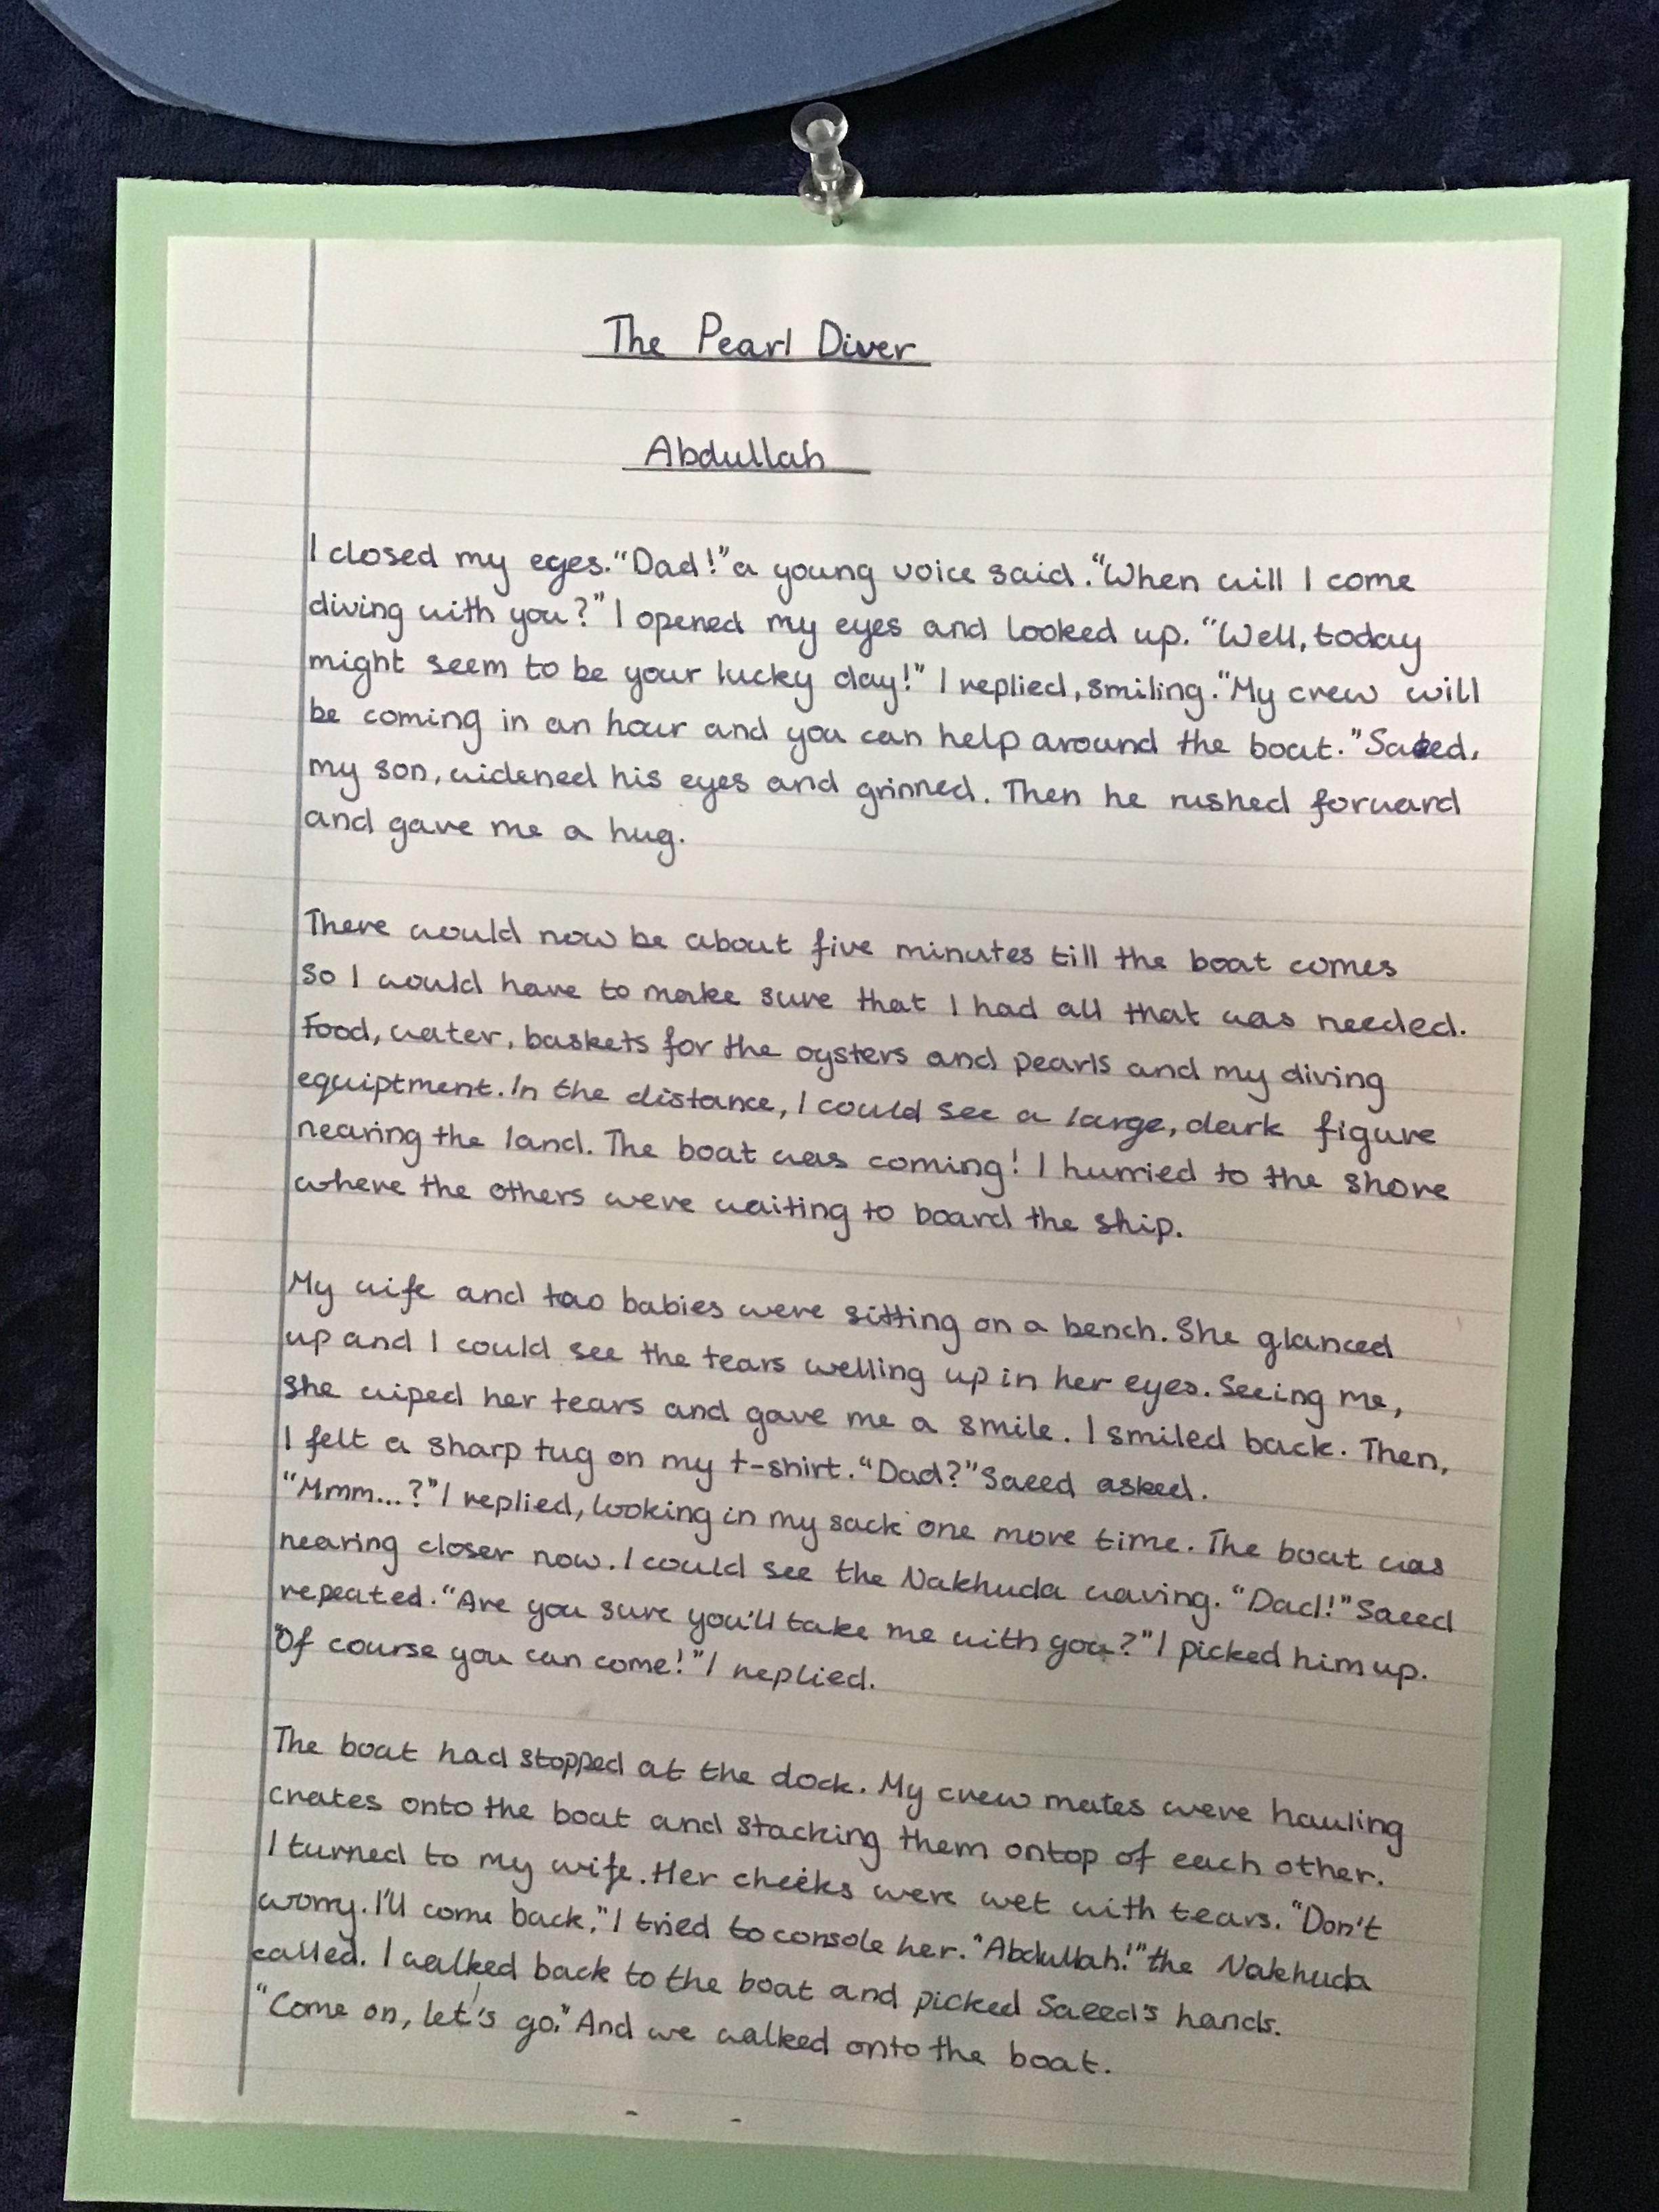 The Pearl Diver
Abdullah
I closed my eyes. "Dad!" a young voice said. "When will I come
diving with you?" I opened my eyes and looked up. "Well, today
might seem to be your lucky day!" I replied, smiling. "My crew will
be coming in an hour and you can help around the boat." Saeed,
my son, widened his eyes and grinned. Then he rushed forward
and gave me a hug.
There would now be about five minutes till the boat comes
so I would have to make sure that I had all that was needed.
Food, water, baskets for the oysters and pearls and my diving
equiptment. In the distance, I could see a large, dark figure
nearing the land. The boat was coming! I hurried to the shore
where the others were waiting to board the ship.
My wife and two babies were sitting on a bench. She glanced
up and I could see the tears welling up in her eyes. Seeing me,
she wiped her tears and gave me a smile. I smiled back. Then,
I felt a sharp tug on my t-shirt. "Dad?" Saeed asked.
"Mmm...?" I replied, looking in my sack one more time. The boat was
nearing closer now. I could see the Nakhuda waving. "Dad!" Saeed
repeated. "Are you sure you'll take me with you?" I picked him up.
"Of course you can come!" I replied.
The boat had stopped at the dock. My crew mates were hauling
crates onto the boat and stacking them ontop of each other.
I turned to my wife. Her cheeks were wet with tears. "Don't
worry. I'll come back." I tried to console her. "Abdullah!" the Nakhuda
called. I walked back to the boat and picked Saeed's hands.
"Come on, let's go." And we walked onto the boat.